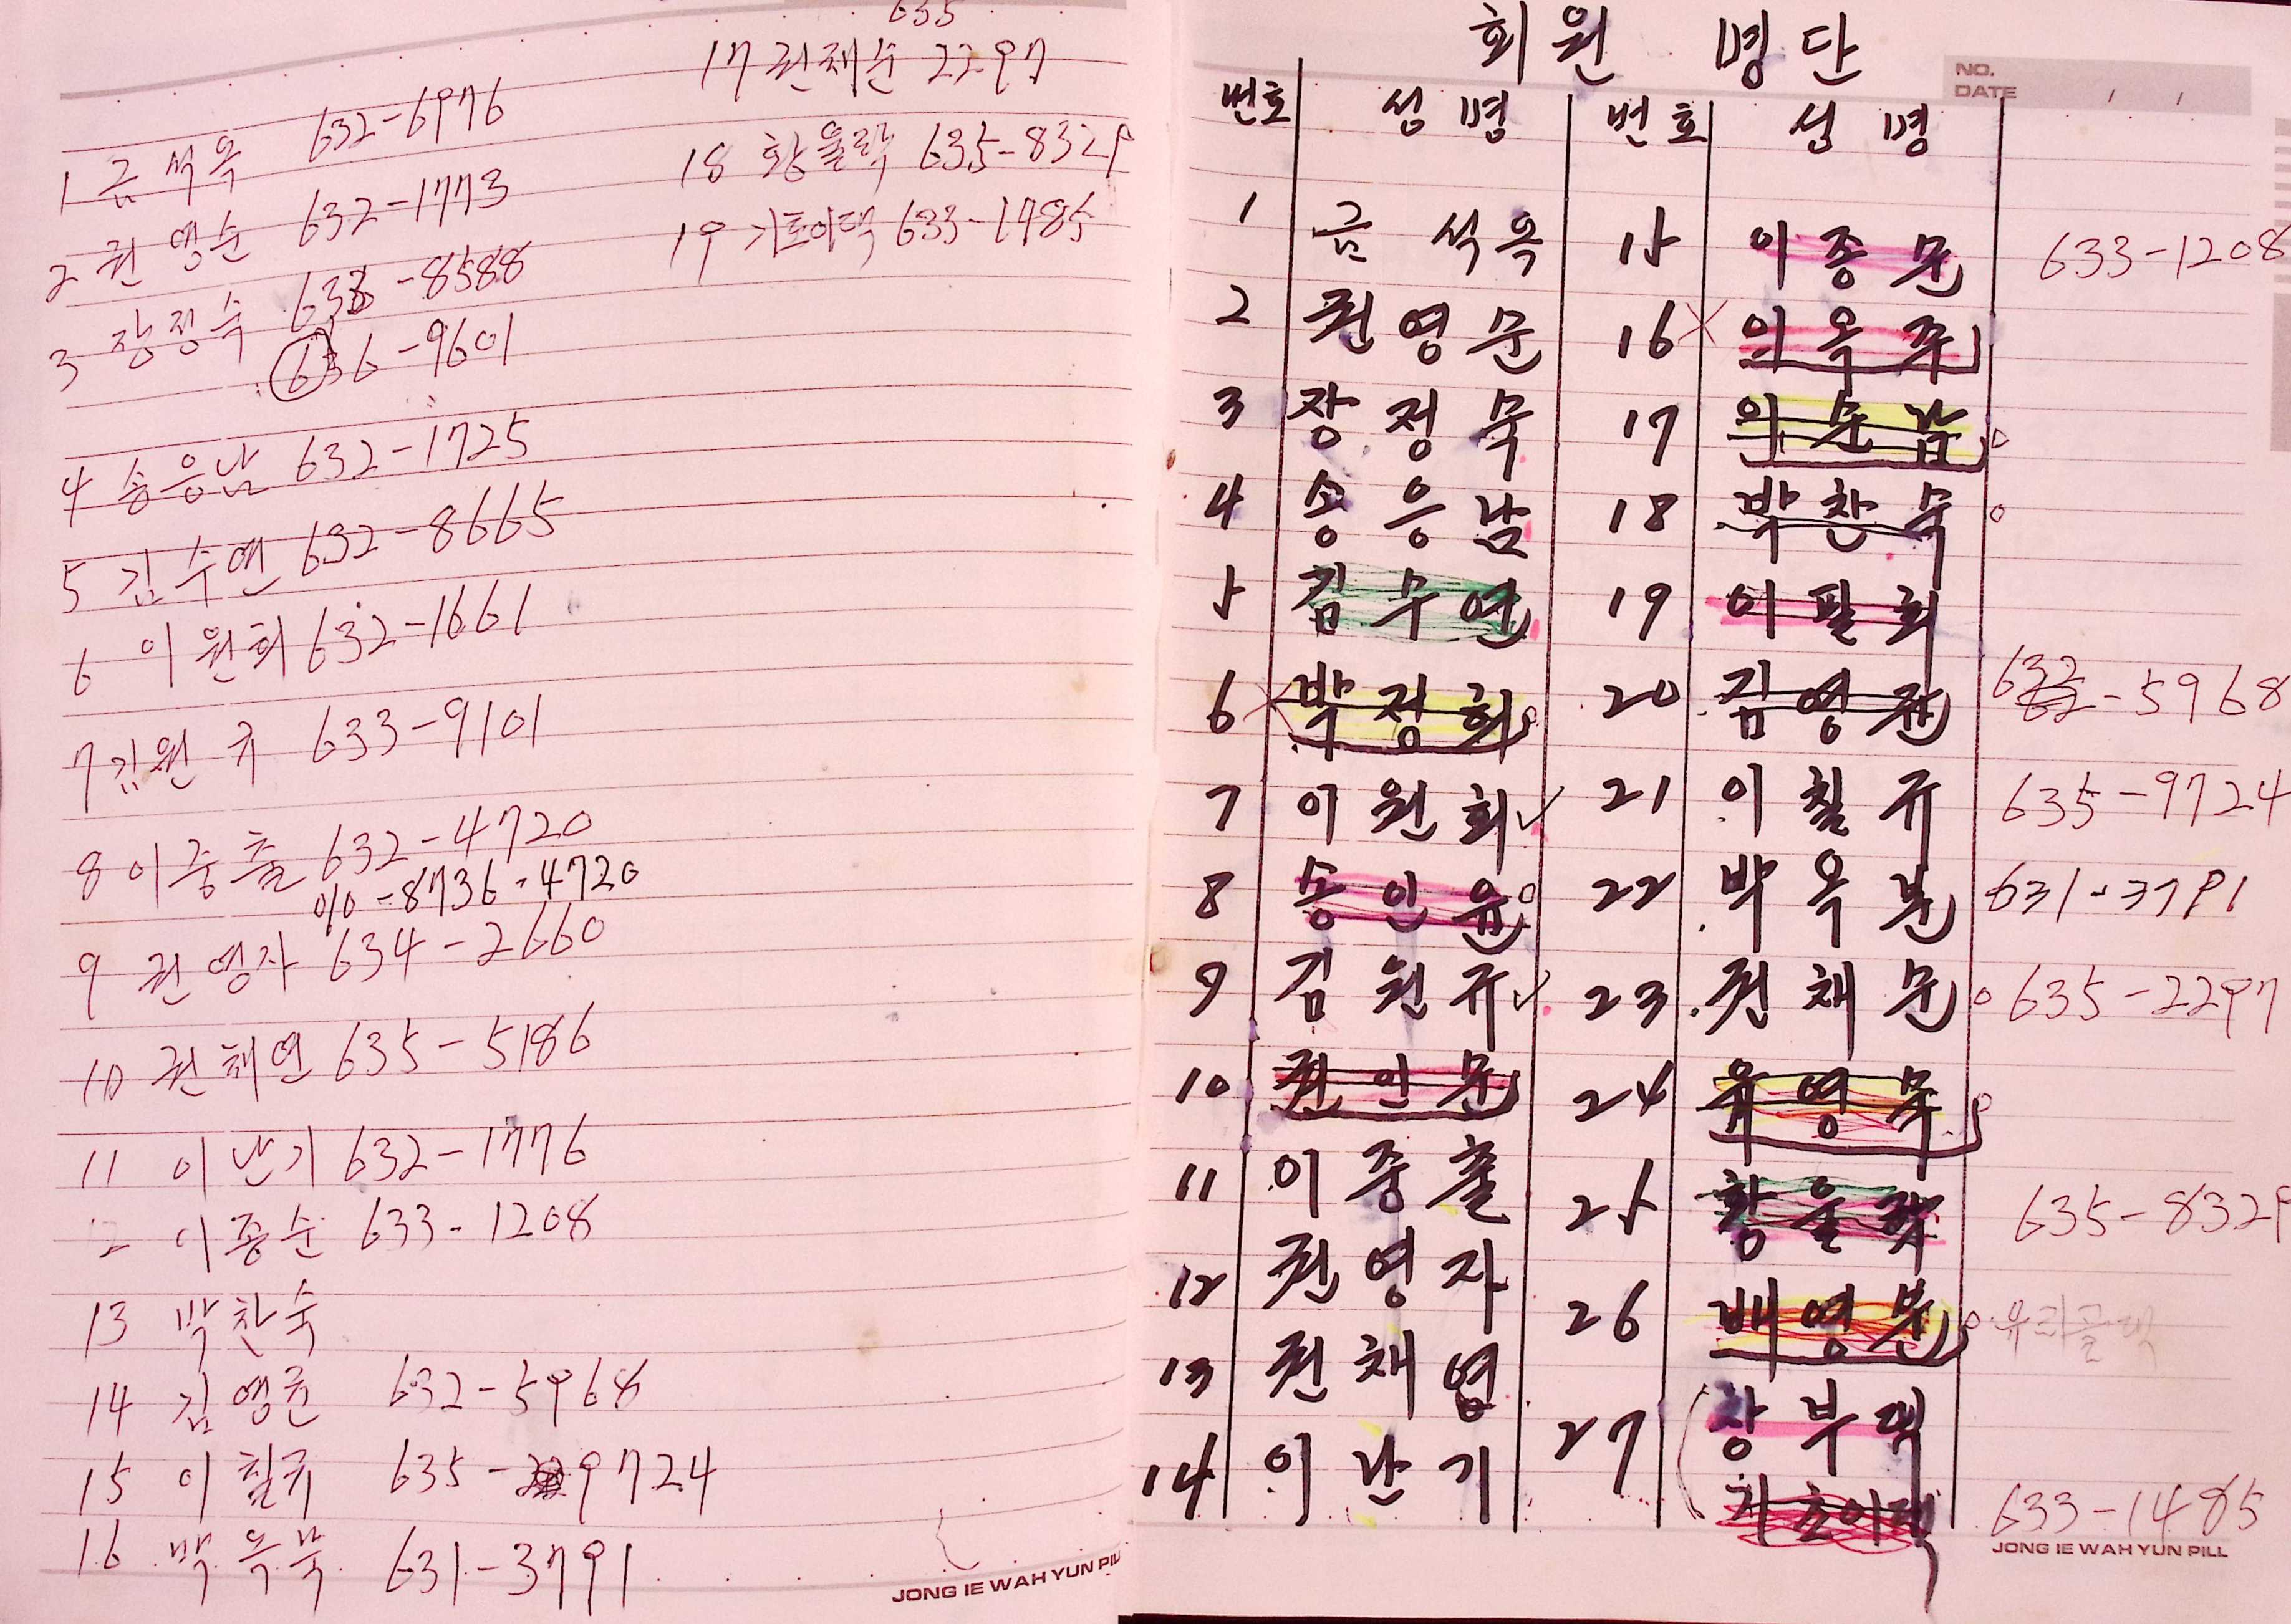 635
17 권채순 2297
18 황울락 635-8329
19 기초이댁 633-1485
1 금석옥 632-6976
2 권영순 632-1773
3 장정숙 633-8588
636-9601
4 송응남 632-1725
5 김수연 632-8665
6 이원희 632-1661
7 김원규 633-9101
8 이중출 632-4720
010-8736-4720
9 권영자 634-2660
10 권채연 635-5186
11 이난기 632-1776
12 이종순 633-1208
13 박찬숙
14 김영준 632-5968
15 이칠규 635-9724
16 박옥분 631-3791
JONG IE WAH YUN PILL
회원 명단
NO.
DATE / /
번호 성명 번호 성명
1 금석옥 15 이종문 633-1208
2 권영문 16 이옥주
3 장정묵 17 이순남
4 송응남 18 박찬숙
5 김수연 19 이필희
6 박정희 20 김영준 632-5968
7 이원희 21 이칠규 635-9724
8 송인윤 22 박옥분 631-3791
9 김원규 23 권채문 635-2297
10 권인문 24 유영묵
11 이중출 25 황울락 635-8329
12 권영자 26 배영분 유리골댁
13 권채엽 27 장부댁
14 이난기 지초이댁 633-1485
JONG IE WAH YUN PILL